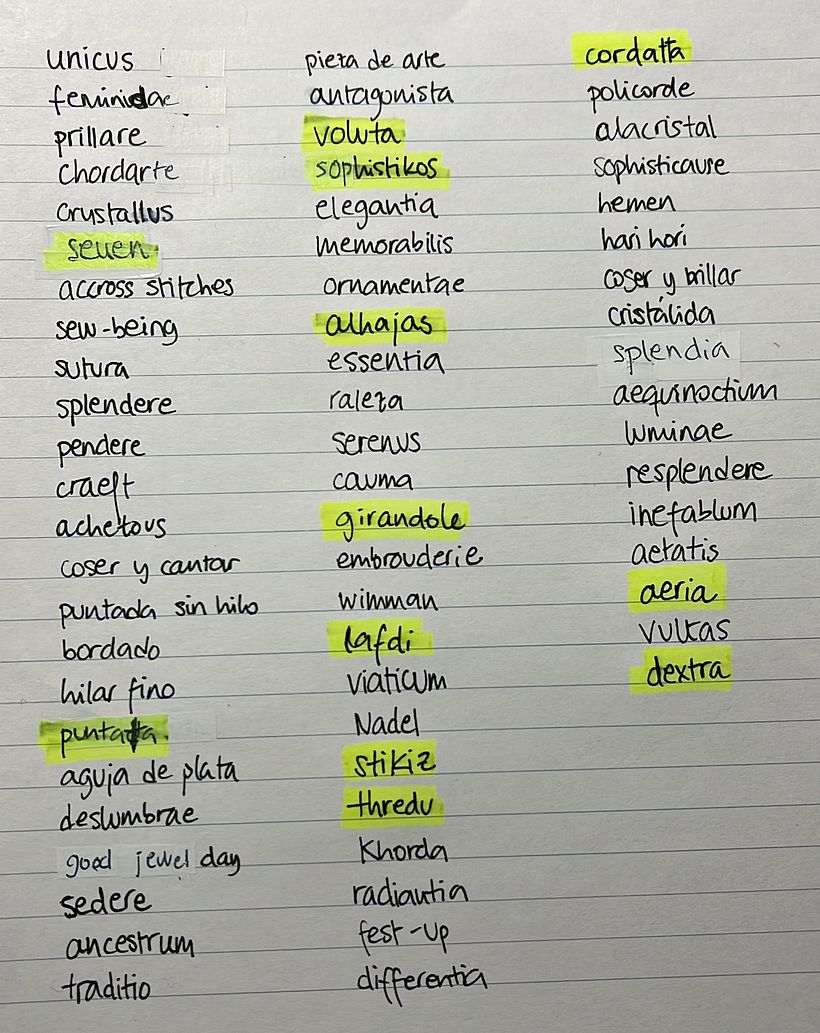 unicus
feminidae
prillare
Chordarte
crustallus
seuen
accross stitches
sew-being
sutura
splendere
pendere
craeft
achetous
coser y cantar
puntada sin hilo
bordado
hilar fino
puntatta
aguja de plata
deslumbrae
good jewel day
sedere
ancestrum
traditio
pieza de arte
antagonista
voluta
sophistikos
elegantia
memorabilis
ornamentae
alhajas
essentia
raleza
serenus
cauma
girandole
embrouderie
wimman
lafdi
viaticum
Nadel
stikiz
thredu
Khorda
radiantia
fest-up
differentia
cordatta
policorde
alacristal
sophisticaure
hemen
hari hori
coser y brillar
cristálida
splendia
aequinoctium
luminae
resplendere
inefablum
aetatis
aeria
vultas
dextra